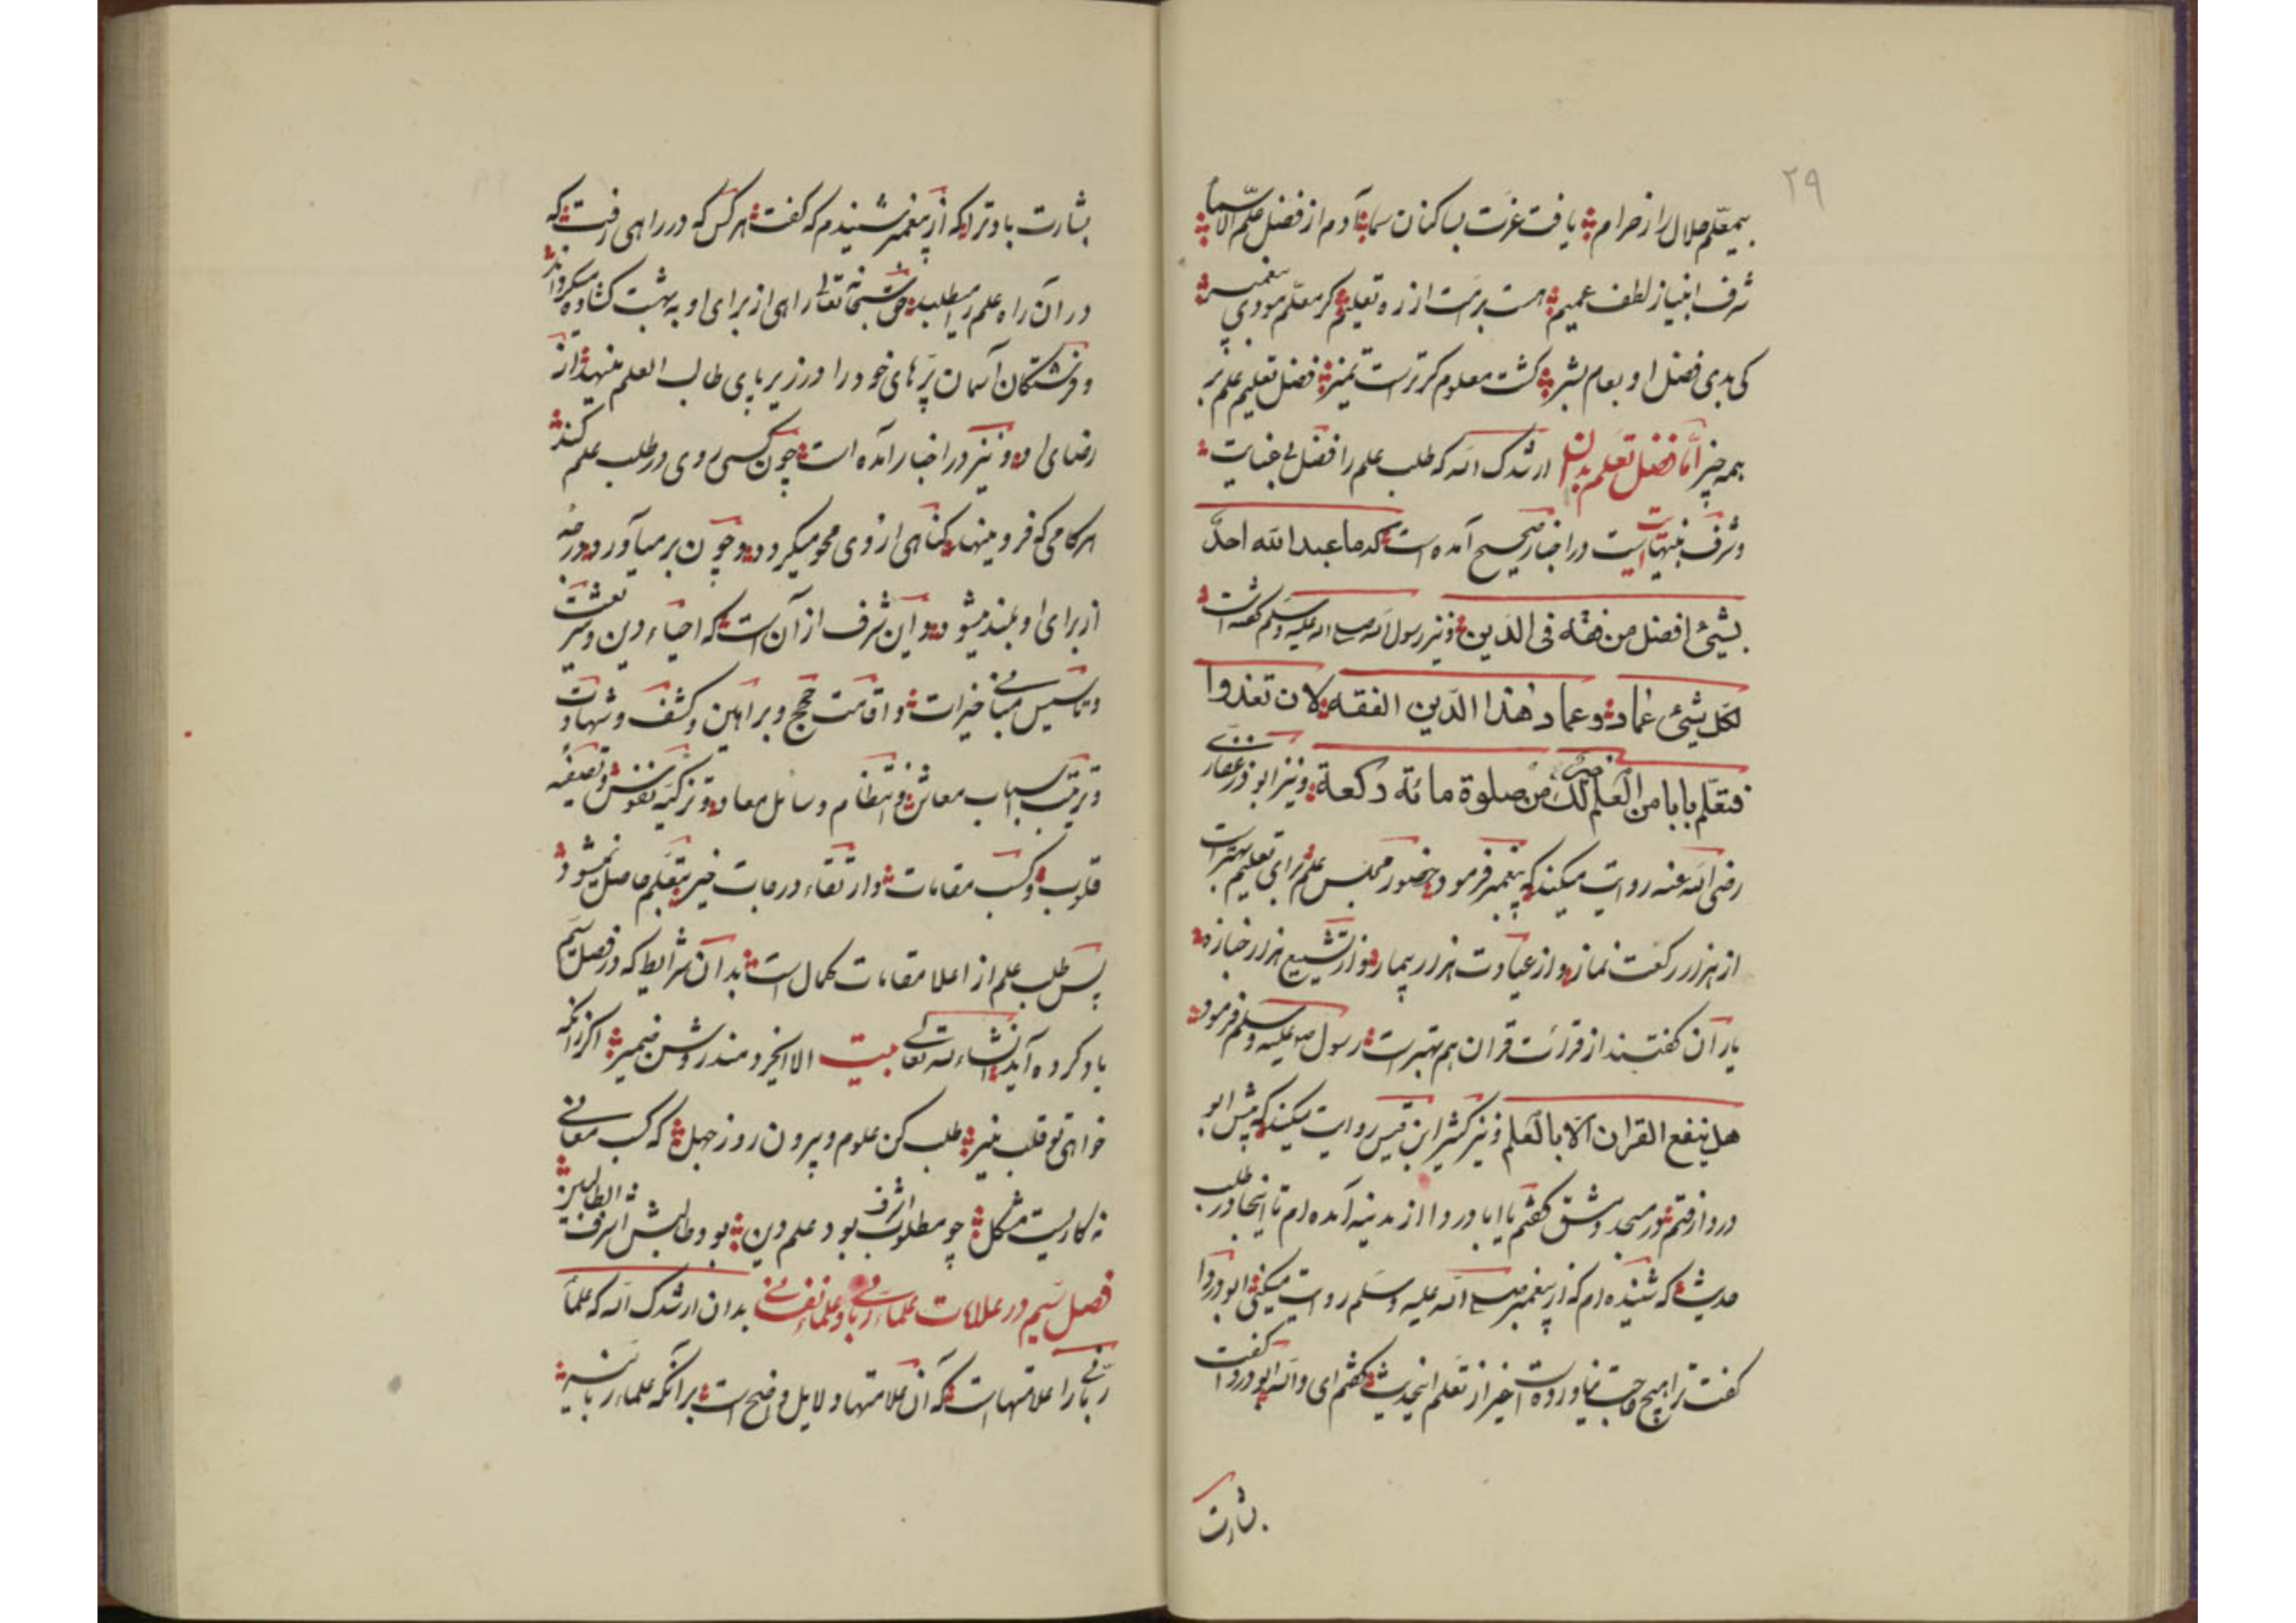 ۲۹
بیمعلّم حلال را از حرام یافت عزت بساکنان سما آدم از فضل علّم الاسماء
شرف انبیا ز لطف عمیم هست برمت از ره تعلیم گر معلّم نبودی پیغمبر
کی بدی فضل او بعام بشر گشت معلوم کرترست تمیز فضل تعلیم علم بر
همه چیز امّا فضل تعلم بدان ارشدک الله که طلب علم را فضل بی غایت
و شرف بینهایت است در اخبار صحیح آمده است که ما عبد الله احدٌ
بشیئ افضل من فقه فی الدّین و نیز رسول الله صلی الله علیه وسلم گفته است
لکل شیئ عماد و عماد هذا الدّین الفقه لان تغدوا
فتعلّم بابا من العلم خیر لک من صلوة مائة رکعة و نیز ابوذر غفاری
رضی الله عنه روایت میکند که پیغمبر فرمود حضور مجلس علم برای تعلیم بهتر است
از هزار رکعت نماز و از عیادت هزار بیمار و از تشییع هزار جنازه
یاران گفتند از قرائت قران هم بهتر است رسول صلی الله علیه وسلم فرمود
هل ینفع القران الّا بالعلم و نیز کثیر ابن قیس روایت میکند که پیش ابو
دردا رفتم در مسجد دمشق گفتم یا ابا دردا از مدینه آمده ام تا اینجا در طلب
حدیثی که شنیده ام که از پیغمبر صلی الله علیه وسلم روایت میکنی ابو دردا
گفت ترا هیچ حاجت نیاورده است بغیر از تعلم اینحدیث گفتم ای والله ابو دردا گفت
بشارت
بشارت باد ترا که از پیغمبر شنیدم که گفت هر کس که در راهی رفت که
در آن راه علم را میطلبد حق سبحانه تعالی راهی از برای او به بهشت گشاده میگرداند
و فرشتگان آسمان پرهای خود را در زیر پای طالب العلم مینهند از
رضای او و نیز در اخبار آمده است چون کسی روی در طلب علم کند
هر گامی که فرو مینهد گناهی از وی محو میگردد و چون بر میآورد درجهٔ
از برای او بلند میشود و این شرف از آن است که احیاء دین و شریعت
و تاسیس مبانی خیرات و اقامت حجج و براهین و کشف و شهادت
و ترتیب اسباب معاش و انتظام وسائل معاد و تزکیه نفوس و تصفیه
قلوب و کسب مقامات و ارتقاء درجات خیر بتعلم حاصل نمیشود
پس طلب علم از اعلا مقامات کمال است بدان شرایط که در فصل سیّم
یاد کرده آید انشاء الله تعالی بیت الا ایخردمند روشن ضمیر اگر زانکه
خواهی تو قلب منیر طلب کن علوم و بیرون رو ز جهل که کسب معانی
نه کاریست مشکل چو مطلوب اشرف بود علم دین بود طالبش اشرف الطالبین
فصل سیّم در علامات علماء ربانی و علماء نفسانی بدان ارشدک الله که علماء
ربّانی را علامتهاست که آن علامتها دلایل واضح است بر آنکه علماء ربانیه